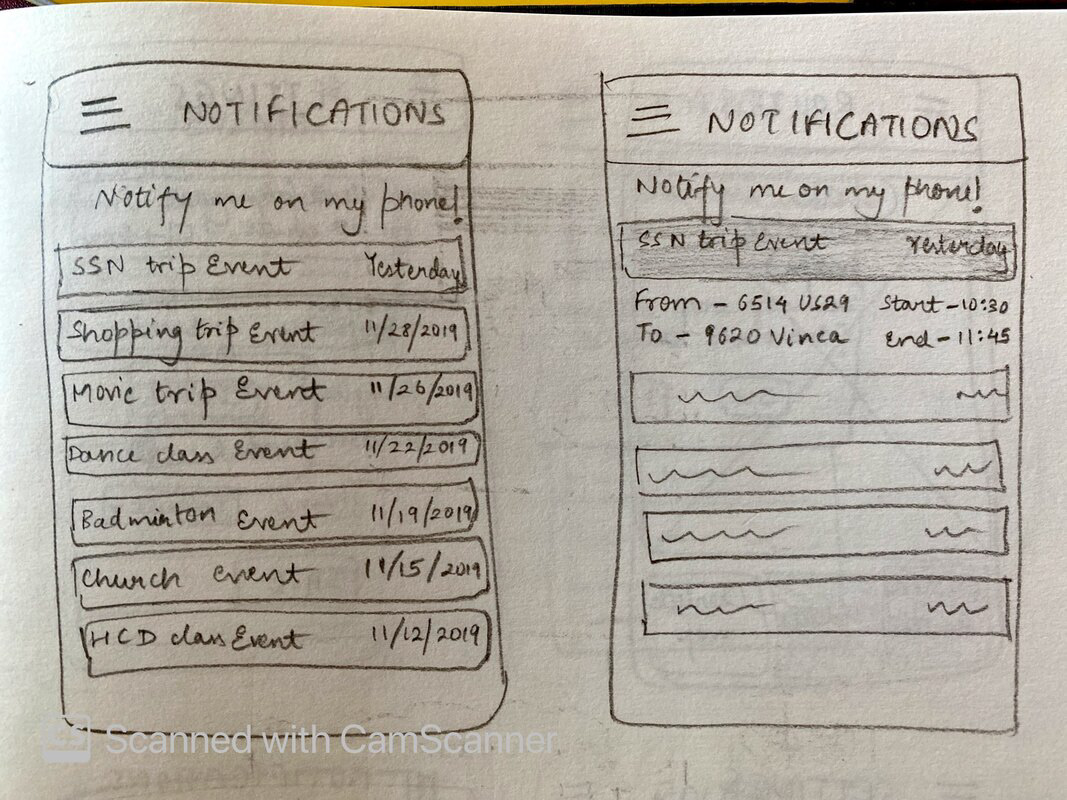 NOTIFICATIONS
Notify me on my phone!
SSN trip Event Yesterday
Shopping trip Event 11/28/2019
Movie trip Event 11/26/2019
Dance class Event 11/22/2019
Badminton Event 11/19/2019
Church event 11/15/2019
HCD class Event 11/12/2019
NOTIFICATIONS
Notify me on my phone!
SSN trip Event Yesterday
From - 6514 US29 Start - 10:30
To - 9620 Vinca End - 11:45
Scanned with CamScanner